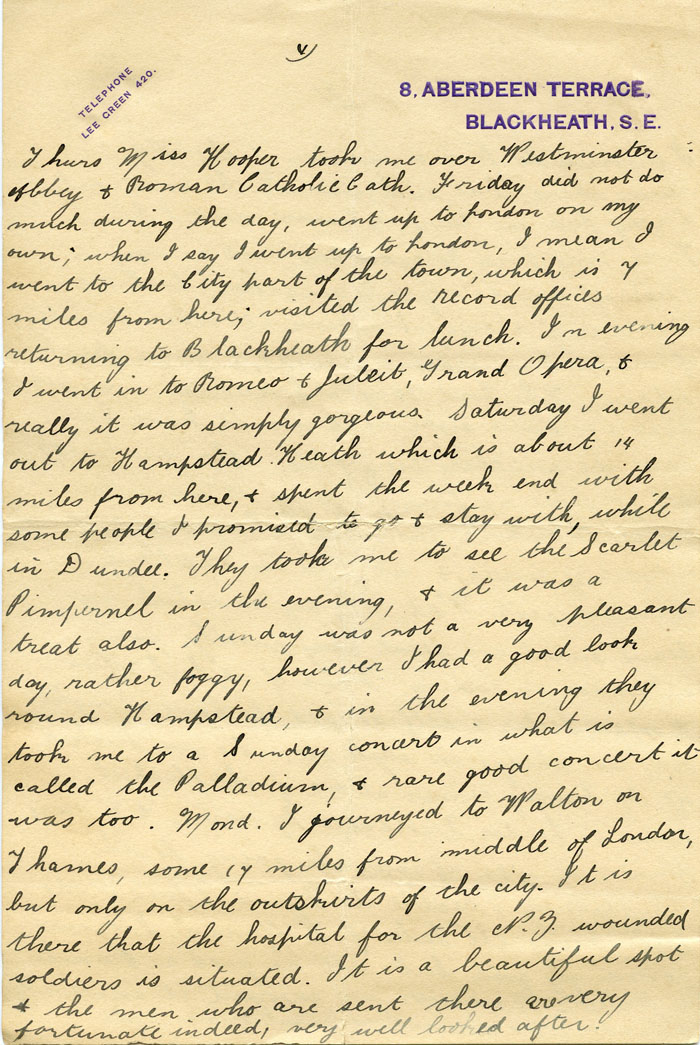 4)
TELEPHONE
LEE GREEN 420.
8, ABERDEEN TERRACE,
BLACKHEATH, S.E.
Thurs Miss Hooper took me over Westminster
Abbey & Roman Catholic Cath. Friday did not do
much during the day, went up to London on my
own; when I say I went up to London, I mean I
went to the City part of the town, which is 7
miles from here; visited the record offices
returning to Blackheath for lunch. In evening
I went in to Romeo & Juleit, Grand Opera, &
really it was simply gorgeous. Saturday I went
out to Hampstead Heath which is about 14
miles from here, & spent the week end with
some people I promised to go & stay with, while
in Dundee. They took me to see the Scarlet
Pimpernel in the evening, & it was a
treat also. Sunday was not a very pleasant
day, rather foggy, however I had a good look
round Hampstead, & in the evening they
took me to a Sunday concert in what is
called the Palladium, & rare good concert it
was too. Mond. I journeyed to Walton on
Thames, some 17 miles from middle of London,
but only on the outskirts of the city. It is
there that the hospital for the N.Z. wounded
soldiers is situated. It is a beautiful spot
& the men who are sent there are very
fortunate indeed, very well looked after.